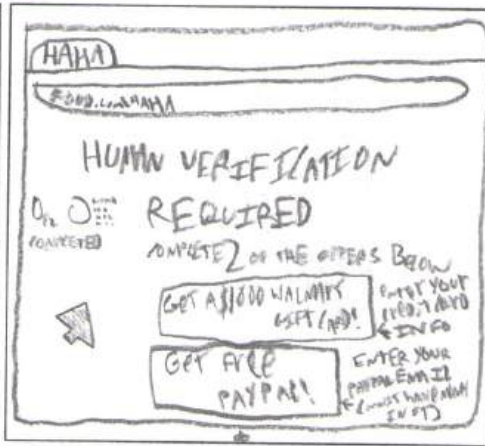 HAHA
HAHA
HUMAN VERIFICATION
REQUIRED
0/2
COMPLETED
COMPLETE 2 OF THE OFFERS BELOW
GET A $1000 WALMART
GIFT CARD!
ENTER YOUR
CREDIT CARD
INFO
GET FREE
PAYPAL!
ENTER YOUR
PAYPAL EMAIL
(MUST HAVE MONEY
IN IT)